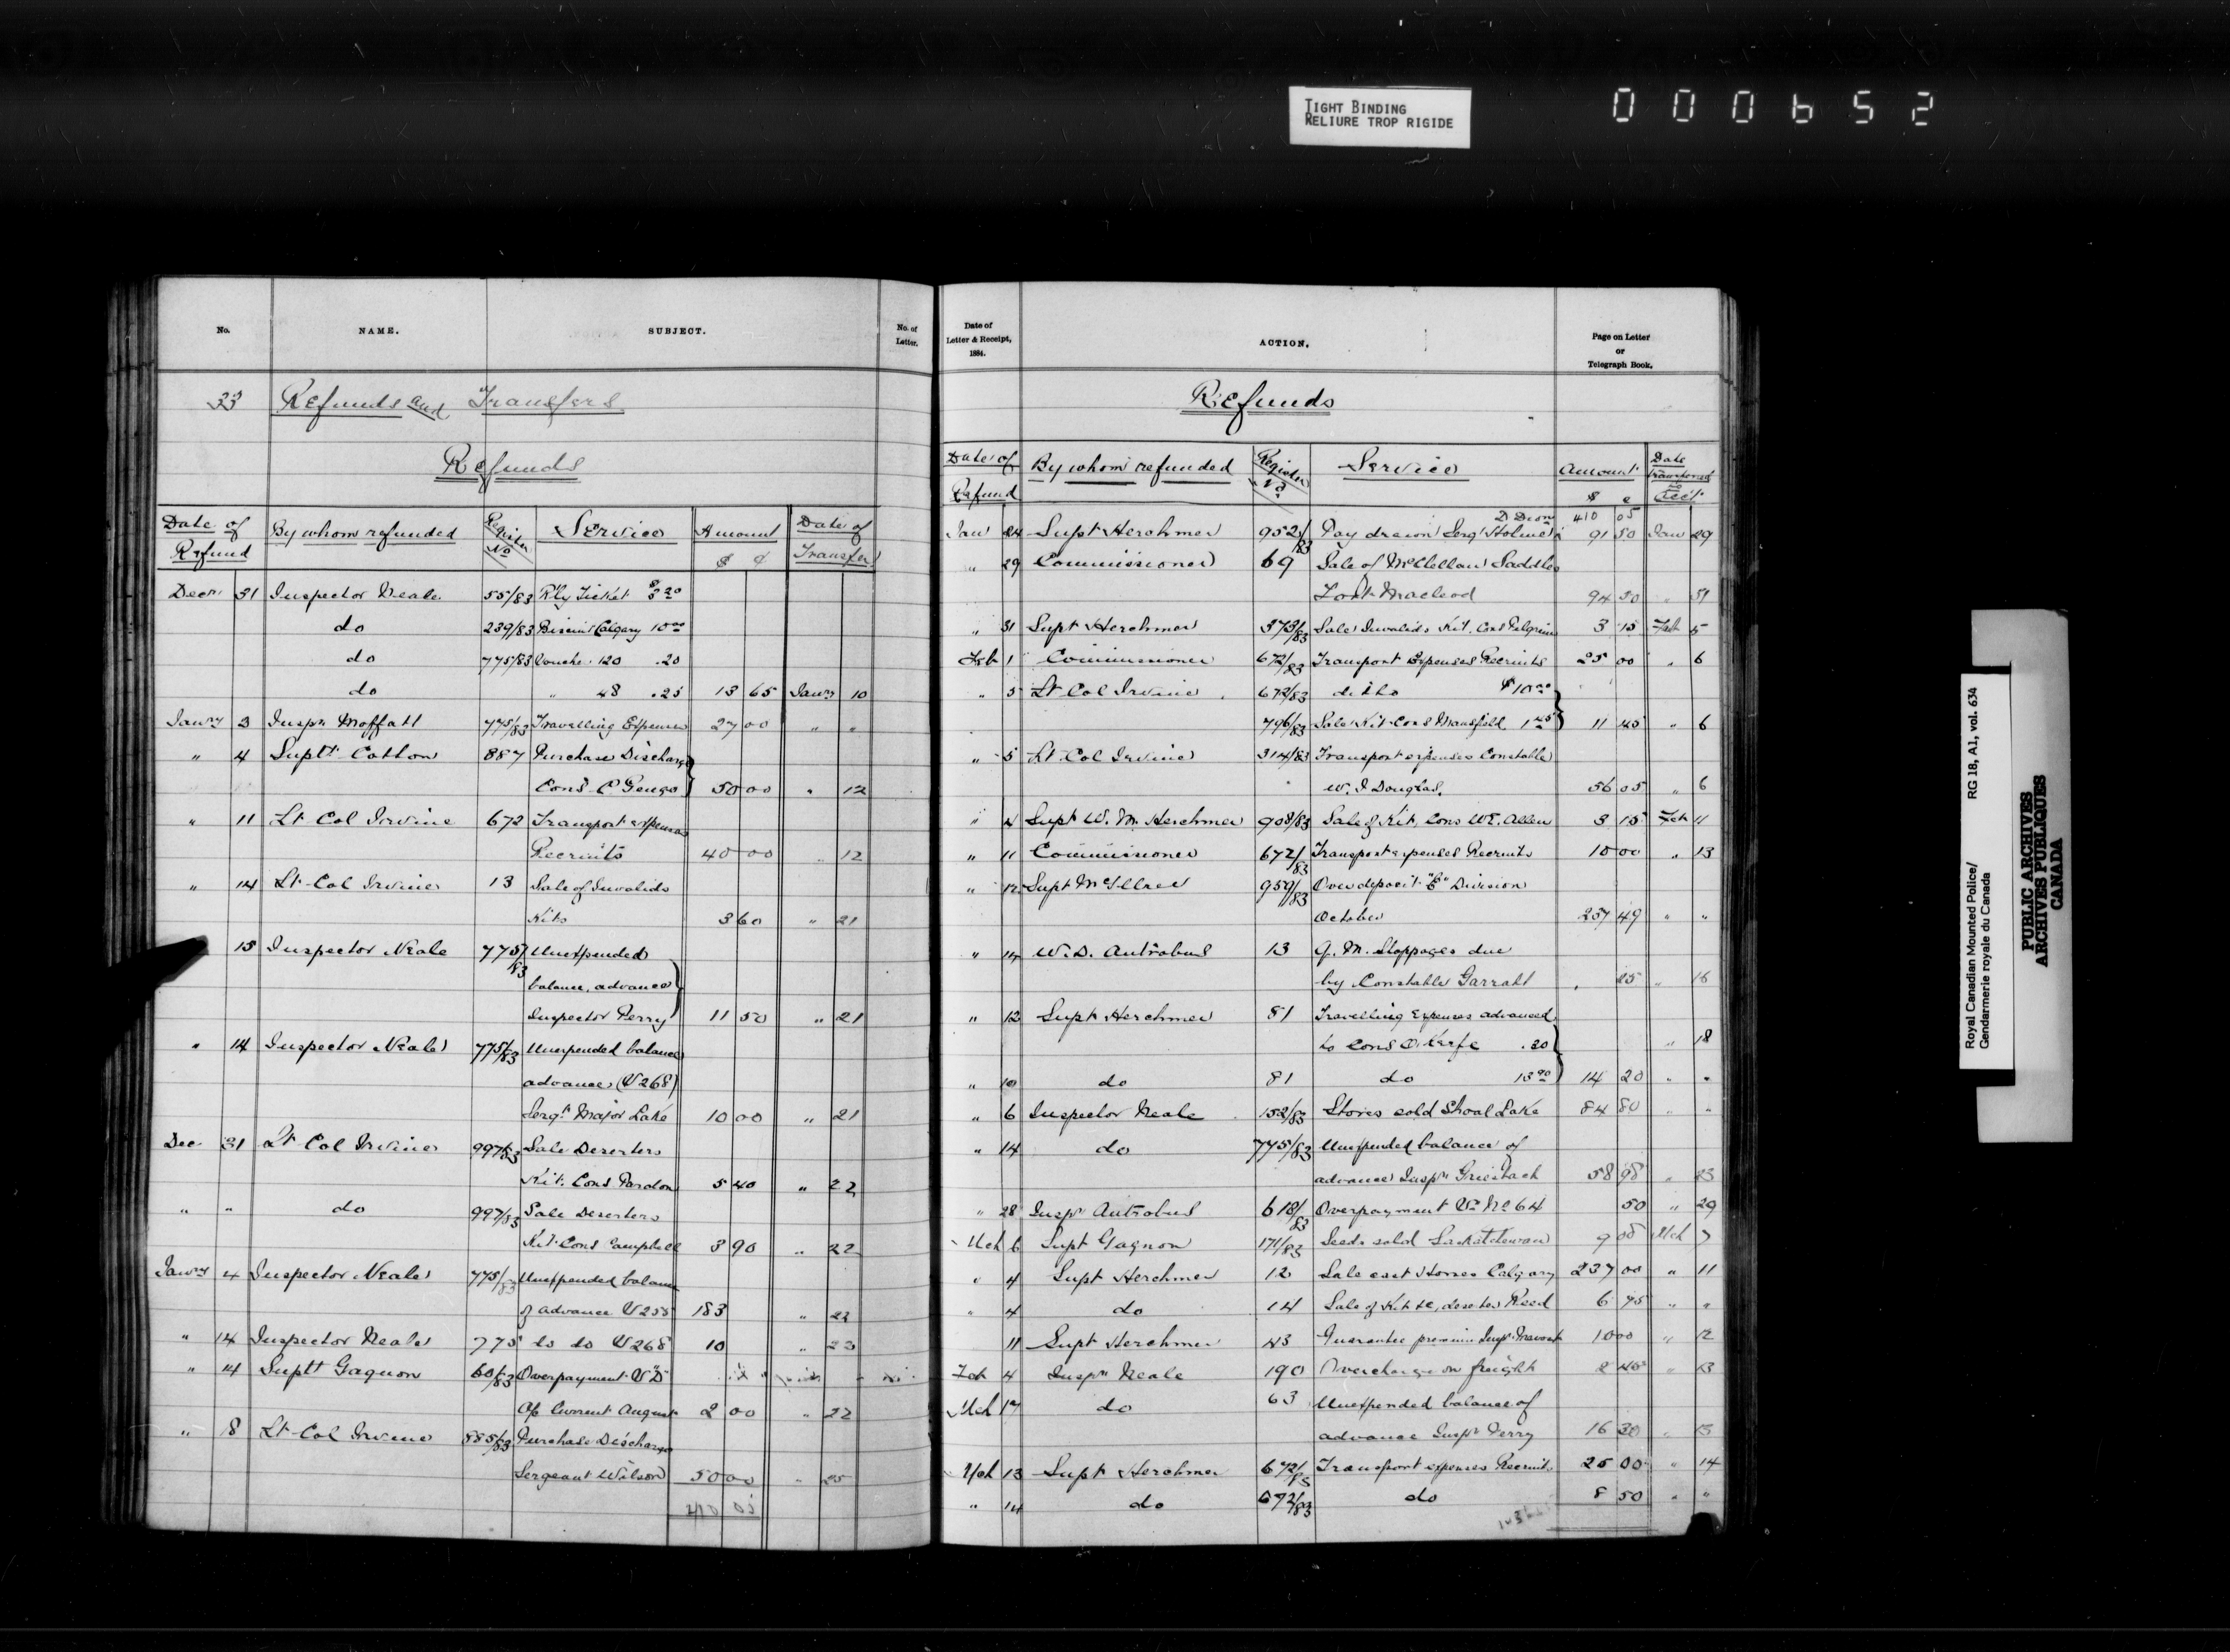 TIGHT BINDING
RELIURE TROP RIGIDE
000652
No. NAME. SUBJECT. No. of Letter.
33 Refunds and Transfers
Refunds
Date of Refund By whom refunded Register No Service Amount $ ¢ Date of Transfer
Decr 31 Inspector Neale 55/83 Rly Ticket $3.20
do 239/83 Calgary 10.00
do 775/83 Voucher 120 .20
do " 48 .25 13 65 Jany 10
Jany 3 Inspr Moffatt 775/83 Travelling Expenses 27 00 " "
" 4 Suptt Cotton 887 Purchase Discharge
Cons C Genge 50 00 " 12
" 11 Lt Col Irvine 672 Transport expenses
Recruits 40 00 " 12
" 14 Lt Col Irvine 13 Sale of Invalids
Kits 3 60 " 21
15 Inspector Neale 775/83 Unexpended
balance, advance
Inspector Perry 11 50 " 21
" 14 Inspector Neale 775/83 Unexpended balance
advance (V 268)
Sergt Major Lake 10 00 " 21
Dec 31 Lt Col Irvine 997/83 Sale Deserters
Kit. Cons Pardon 5 40 " 22
" " do 997/83 Sale Deserters
Kit Cons Campbell 3 90 " 22
Jany 4 Inspector Neale 775/83 Unexpended balance
of advance V 255 183 " 22
" 14 Inspector Neale 775 do do V 268 10 " 23
" 14 Suptt Gagnon 60/83 Overpayment V "D"
Current August 2 00 " 22
" 8 Lt Col Irvine 885/83 Purchase Discharge
Sergeant Wilson 50 00 " 25
410 05
Date of Letter & Receipt, 1884. ACTION. Page on Letter or Telegraph Book.
Refunds
Date of Refund By whom refunded Register No Service Amount $ c Date Transferred to Rec't
410 05
Jan 24 Supt Herchmer 952/83 Pay drawn Sergt Holmes 91 50 Jan 29
" 29 Commissioner 69 Sale of McClellan Saddles
Fort Macleod 94 50 " 31
" 31 Supt Herchmer 373/83 Sale Invalids Kit. Cons Pilgrim 3 15 Feb 5
Feb 1 Commissioner 672/83 Transport Expenses Recruits 25 00 " 6
" 5 Lt Col Irvine 672/83 ditto $10.00
796/83 Sale Kit Cons Mansfield 1.45 11 45 " 6
" 5 Lt Col Irvine 314/83 Transport expenses Constable
W. J Douglas. 56 05 " 6
" 4 Supt W. M. Herchmer 908/83 Sale of Kit, Cons W E. Allen 3 15 Feb 11
" 11 Commissioner 672/83 Transport expenses Recruits 10 00 " 13
" 12 Supt McIllree 959/83 Over deposit Division
October 257 49 " "
" 14 W. D. Antrobus 13 Q. M. Stoppages due
by Constable Garratt 25 " 16
" 12 Supt Herchmer 81 Travelling Expenses advanced
to Cons O'Keefe .30 " 18
" 10 do 81 do 13.90 14 20 " "
" 6 Inspector Neale 152/83 Stores sold Shoal Lake 84 80 " "
" 14 do 775/83 Unexpended balance of
advance Inspr Griesbach 58 98 " 23
" 28 Inspr Antrobus 618/83 Overpayment Vr No 64 50 " 29
Mch 6 Supt Gagnon 171/83 Seeds sold Saskatchewan 9 00 Mch 7
" 4 Supt Herchmer 12 Sale cast Horses Calgary 237 00 " 11
" 4 do 14 Sale of Kit &c, deserter Reed 6 75 " "
11 Supt Herchmer 43 Guarantee premium Inspr 10 00 " 12
Feb 4 Inspr Neale 190 Overcharge on freight 2 40 " 13
Mch 17 do 63 Unexpended balance of
advance Inspr Perry 16 30 " 13
Mch 13 Supt Herchmer 672/83 Transport expenses Recruits 25 00 " 14
" 14 do 672/83 do 8 50 " "
Royal Canadian Mounted Police/ RG 18, A1, vol. 634
Gendarmerie royale du Canada
PUBLIC ARCHIVES
ARCHIVES PUBLIQUES
CANADA